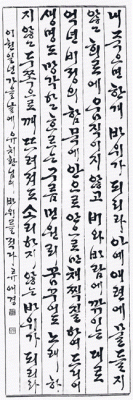 내 죽으면 한개 바위가 되리라 아예 애련에 물들지
않고 희로에 움직이지 않고 비와 바람에 깎이는 대로
억년 비정의 함묵에 안으로 안으로만 채찍질하여 드디어
생명도 망각하고 흐르는 구름 머언 원뢰 꿈꾸어도 노래하
지 않고 두쪽으로 깨뜨려져도 소리하지 않는 바위가 되리라
이천일년 가을날에 유치환님의 바위를 적다 류애경